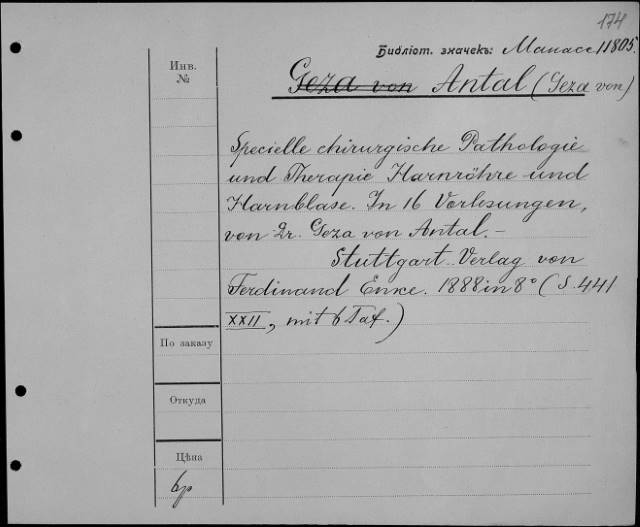 174
Библіот. значекъ: Манасс. 11805.
Инв.
№
Geza von Antal (Geza von)
Specielle chirurgische Pathologie
und Therapie Harnröhre und
Harnblase. In 16 Vorlesungen,
von Dr. Geza von Antal. –
Stuttgart. Verlag von
Ferdinand Enke. 1888 in 8° (S. 441
XXII, mit 6 Taf.)
По заказу
Откуда
Цѣна
6р